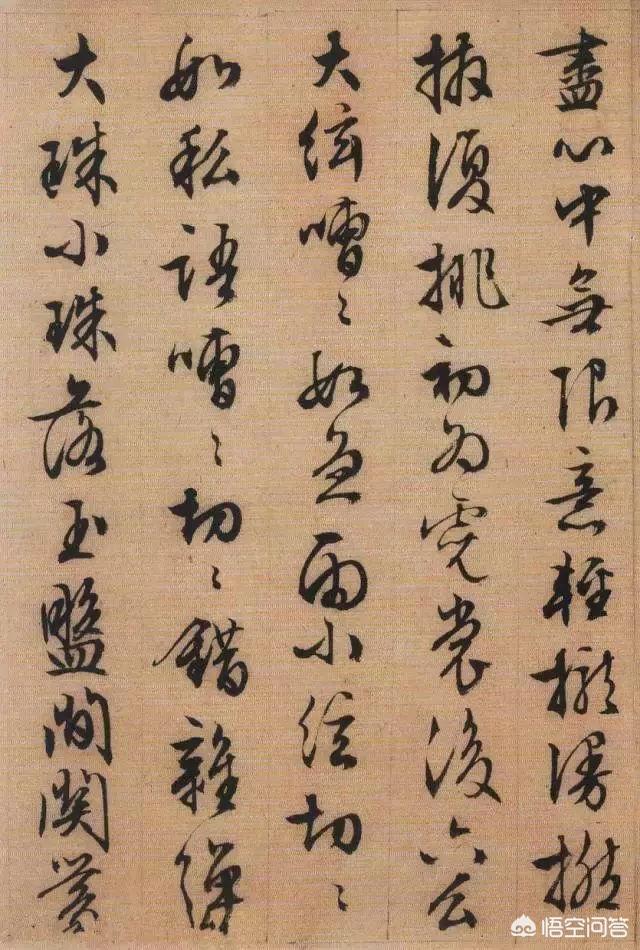 盡心中無限意輕攏慢撚
抹復挑初為霓裳後六么
大絃嘈〻如急雨小絃切〻
如私語嘈〻切〻錯雜彈
大珠小珠落玉盤間關鶯
悟空问答